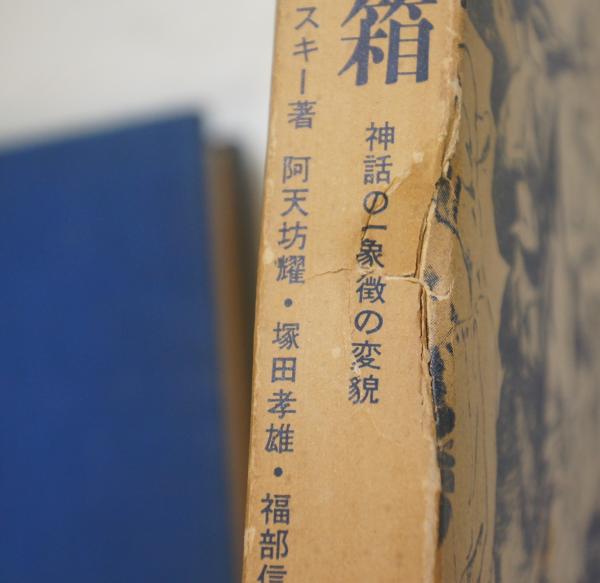 箱
神話の一象徴の変貌
スキー著 阿天坊耀・塚田孝雄・福部信